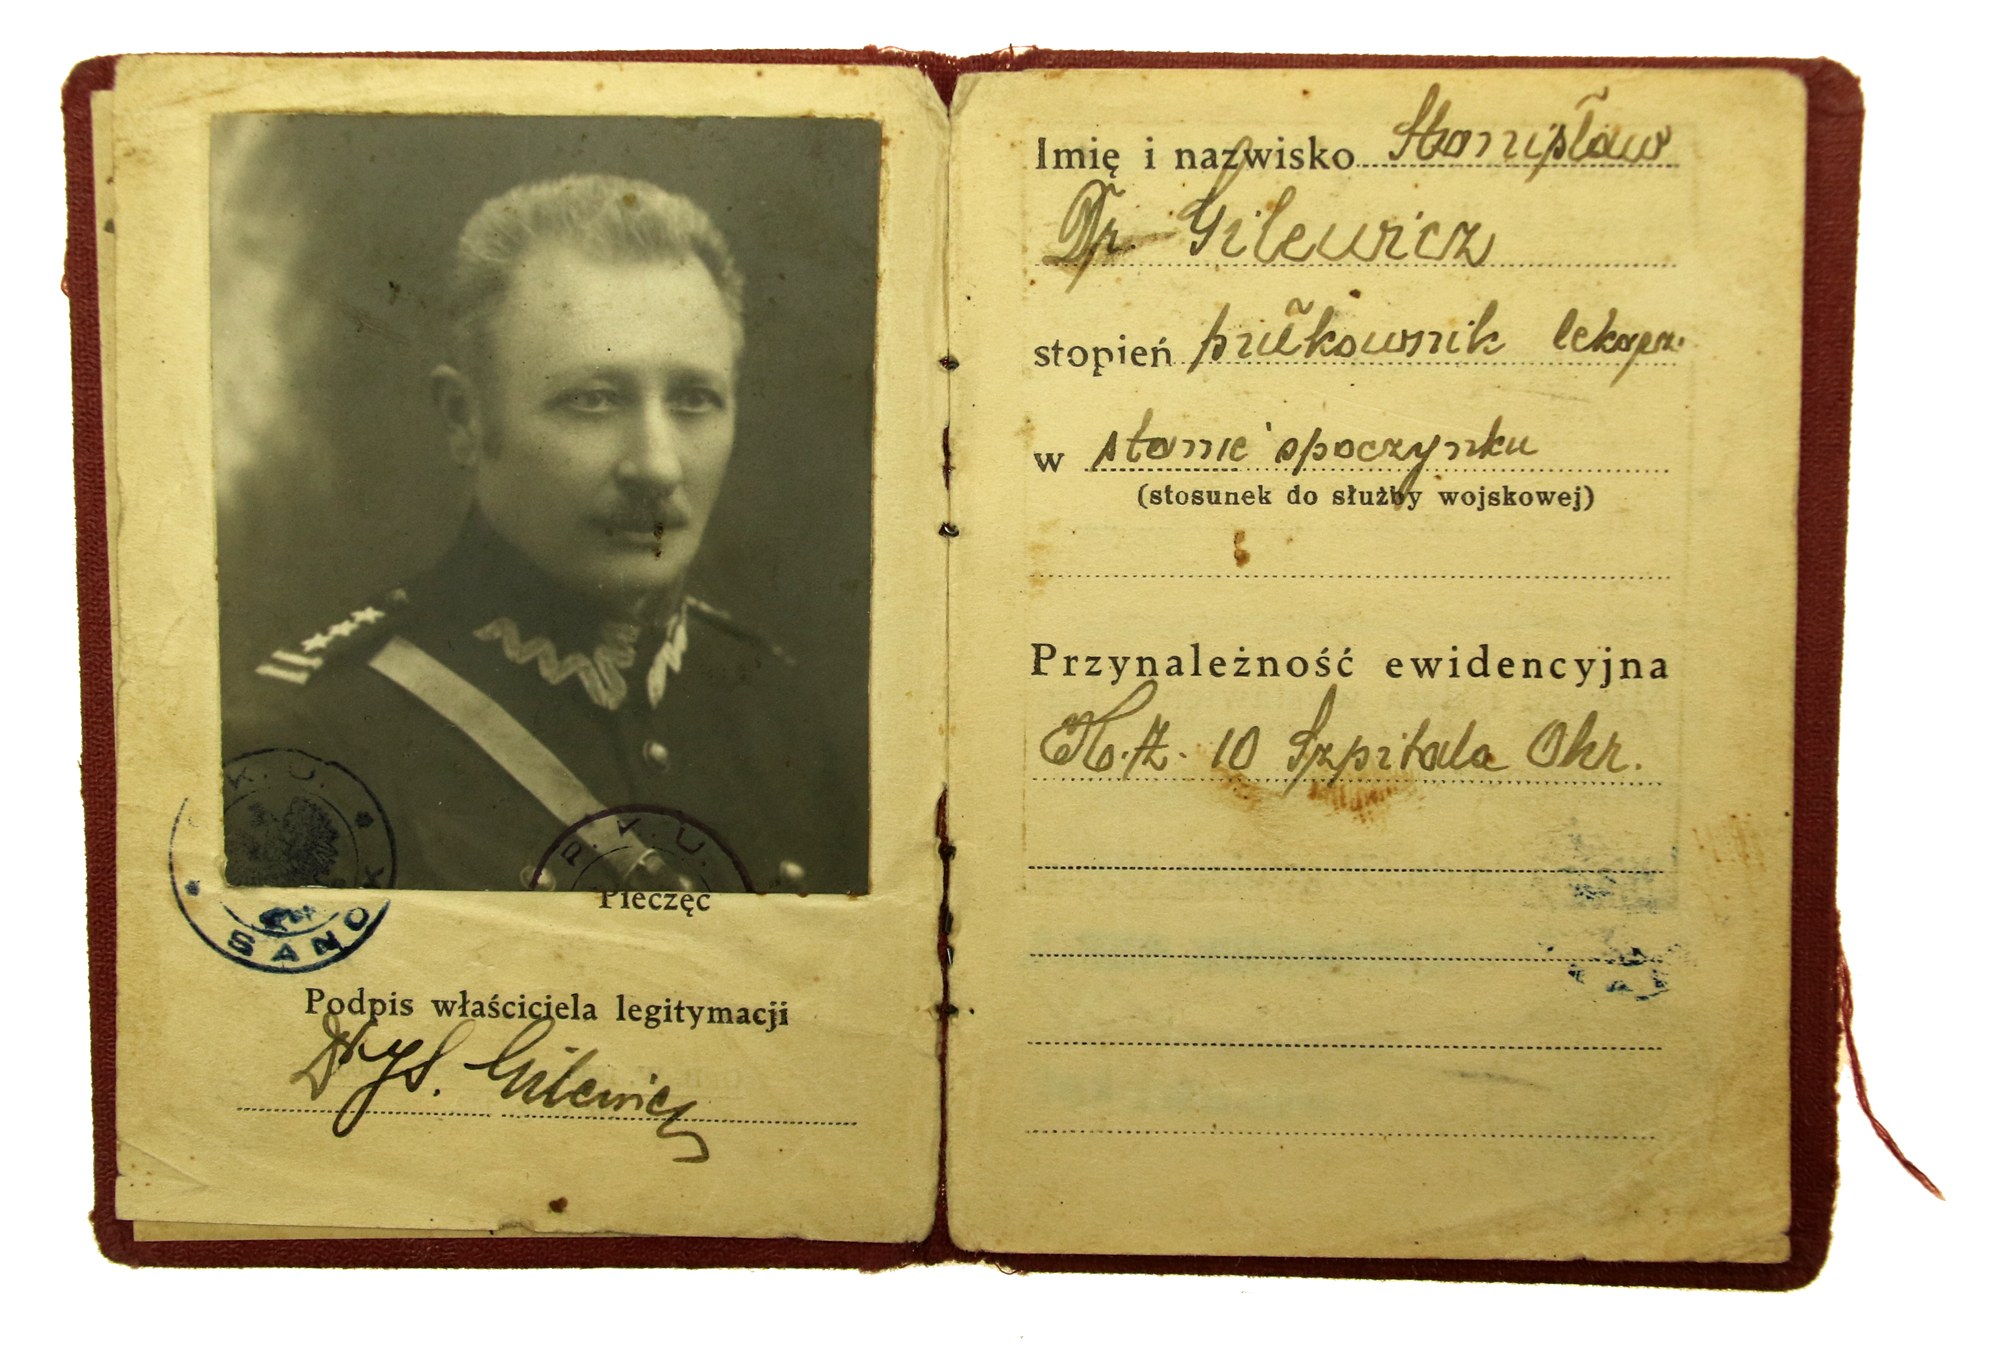 P. K. U.
* SANOK *
P. K. U.
Pieczęć
Podpis właściciela legitymacji
Dr S. Gilewicz
Imię i nazwisko Stanisław
Dr. Gilewicz
stopień pułkownik lekarz
w stanie spoczynku
(stosunek do służby wojskowej)
Przynależność ewidencyjna
K.Z. 10 Szpitala Okr.